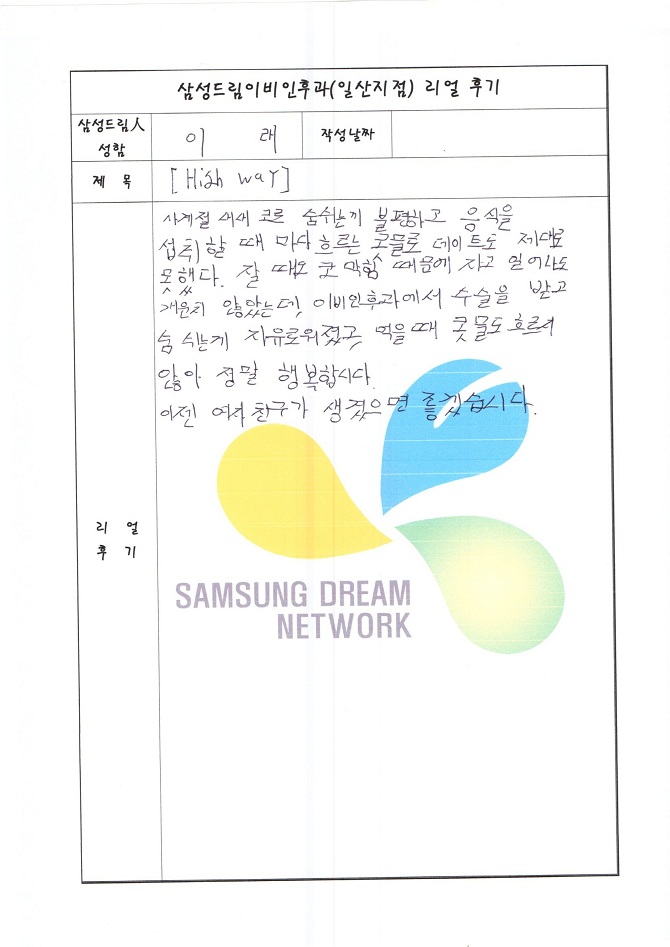 삼성드림이비인후과(일산지점) 리얼 후기
삼성드림人
성함
이 래
작성날짜
제 목
[High way]
리 얼
후 기
사계절 내내 코로 숨쉬는게 불편하고 음식을
섭취할 때 마다 흐르는 콧물로 데이트도 제대로
못했다. 잘 때도 코막힘 때문에 자고 일어나도
개운치 않았는데, 이비인후과에서 수술을 받고
숨 쉬는게 자유로워졌고, 먹을때 콧물도 흐르지
않아 정말 행복합니다.
이젠 여자친구가 생겼으면 좋겠습니다.
SAMSUNG DREAM
NETWORK